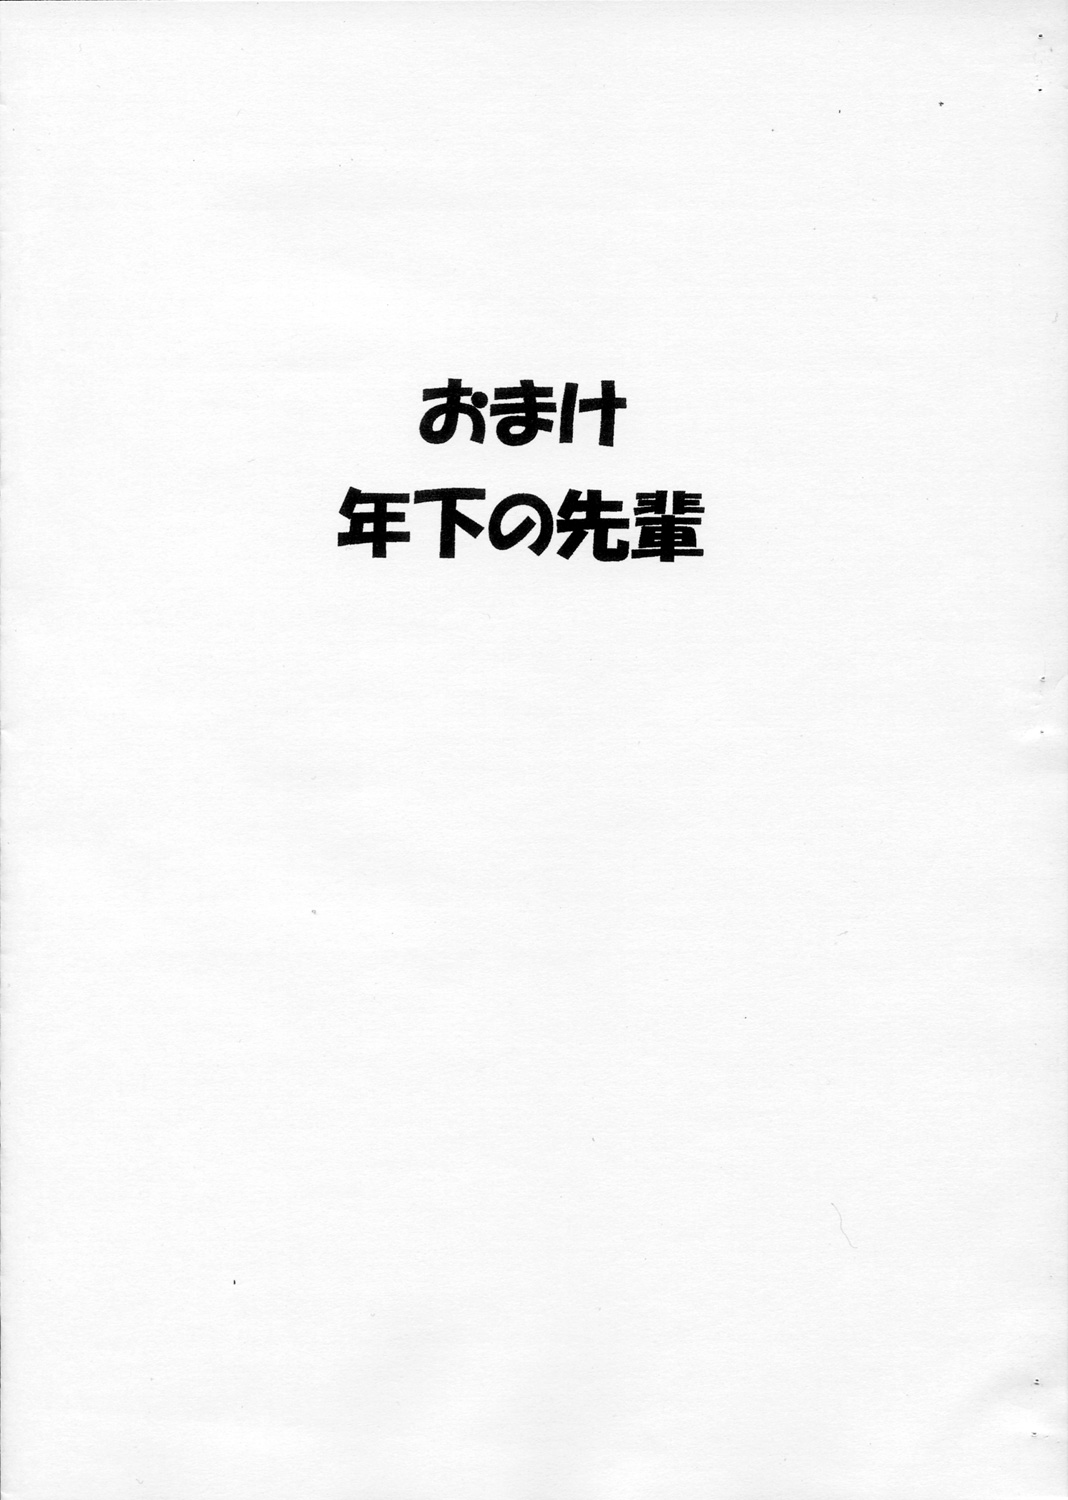 おまけ
年下の先輩